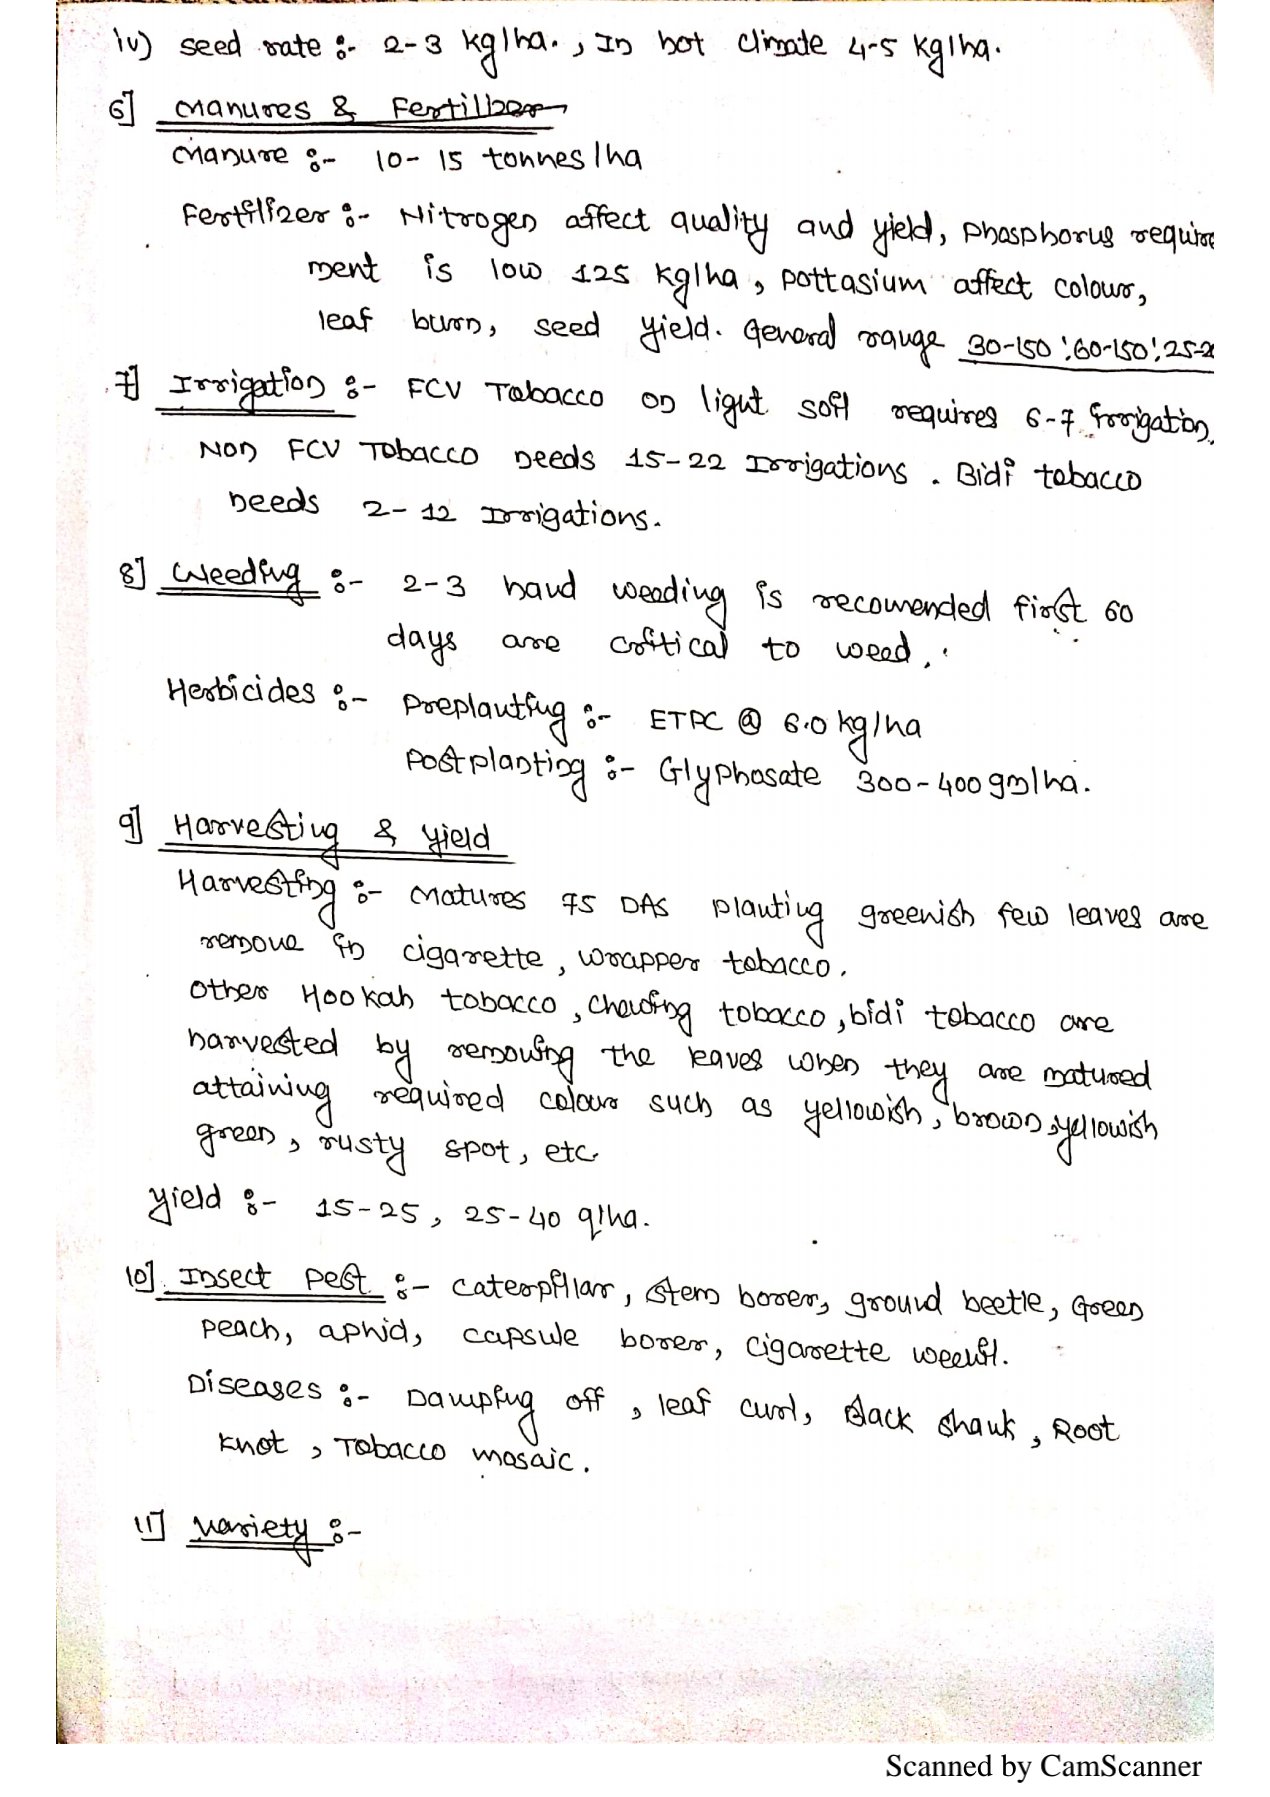 iv) seed rate :- 2-3 kg/ha., In hot climate 4-5 kg/ha.
6] Manures & Fertilizer
Manure :- 10-15 tonnes/ha
Fertilizer :- Nitrogen affect quality and yield, phosphorus require
ment is low 125 kg/ha, pottasium affect colour,
leaf burn, seed yield. General range 30-150:60-150:25-2
7] Irrigation :- FCV Tobacco on light soil requires 6-7 irrigation.
Non FCV Tobacco needs 15-22 Irrigations. Bidi tobacco
needs 2-12 Irrigations.
8] Weeding :- 2-3 hand weeding is recomended first 60
days are critical to weed.
Herbicides :- Preplanting :- ETPC @ 6.0 kg/ha
Postplanting :- Glyphosate 300-400 gm/ha.
9] Harvesting & yield
Harvesting :- Matures 75 DAS planting greenish few leaves are
remove in cigarette, wrapper tobacco.
Other Hookah tobacco, chewing tobacco, bidi tobacco are
harvested by removing the leaves when they are matured
attaining required colour such as yellowish, brown, yellowish
green, rusty spot, etc.
Yield :- 15-25, 25-40 q/ha.
10] Insect Pest :- Caterpillar, Stem borer, ground beetle, Green
peach, aphid, capsule borer, cigarette weevil.
Diseases :- Damping off, leaf curl, Black shank, Root
knot, Tobacco mosaic.
11] Variety :-
Scanned by CamScanner